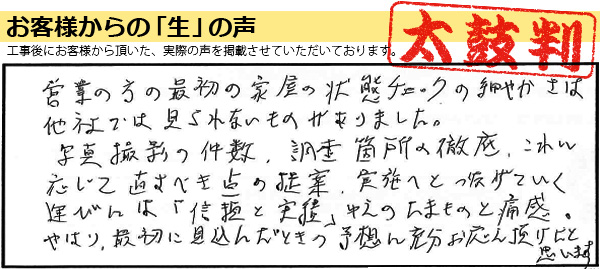 お客様からの「生」の声
太鼓判
工事後にお客様から頂いた、実際の声を掲載させていただいております。
営業の方の最初の家屋の状態チェックの細やかさは
他社では見られないものがありました。
写真撮影の件数、調査箇所の徹底、これに
応じて直すべき点の提案、実施へと繋げていく
運びには「信頼と実績」ゆえのたまものと痛感。
やはり、最初に見込んだときの予想に充分お応え頂けたと
思います